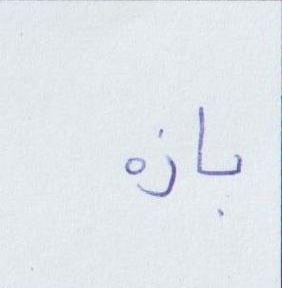 بازه